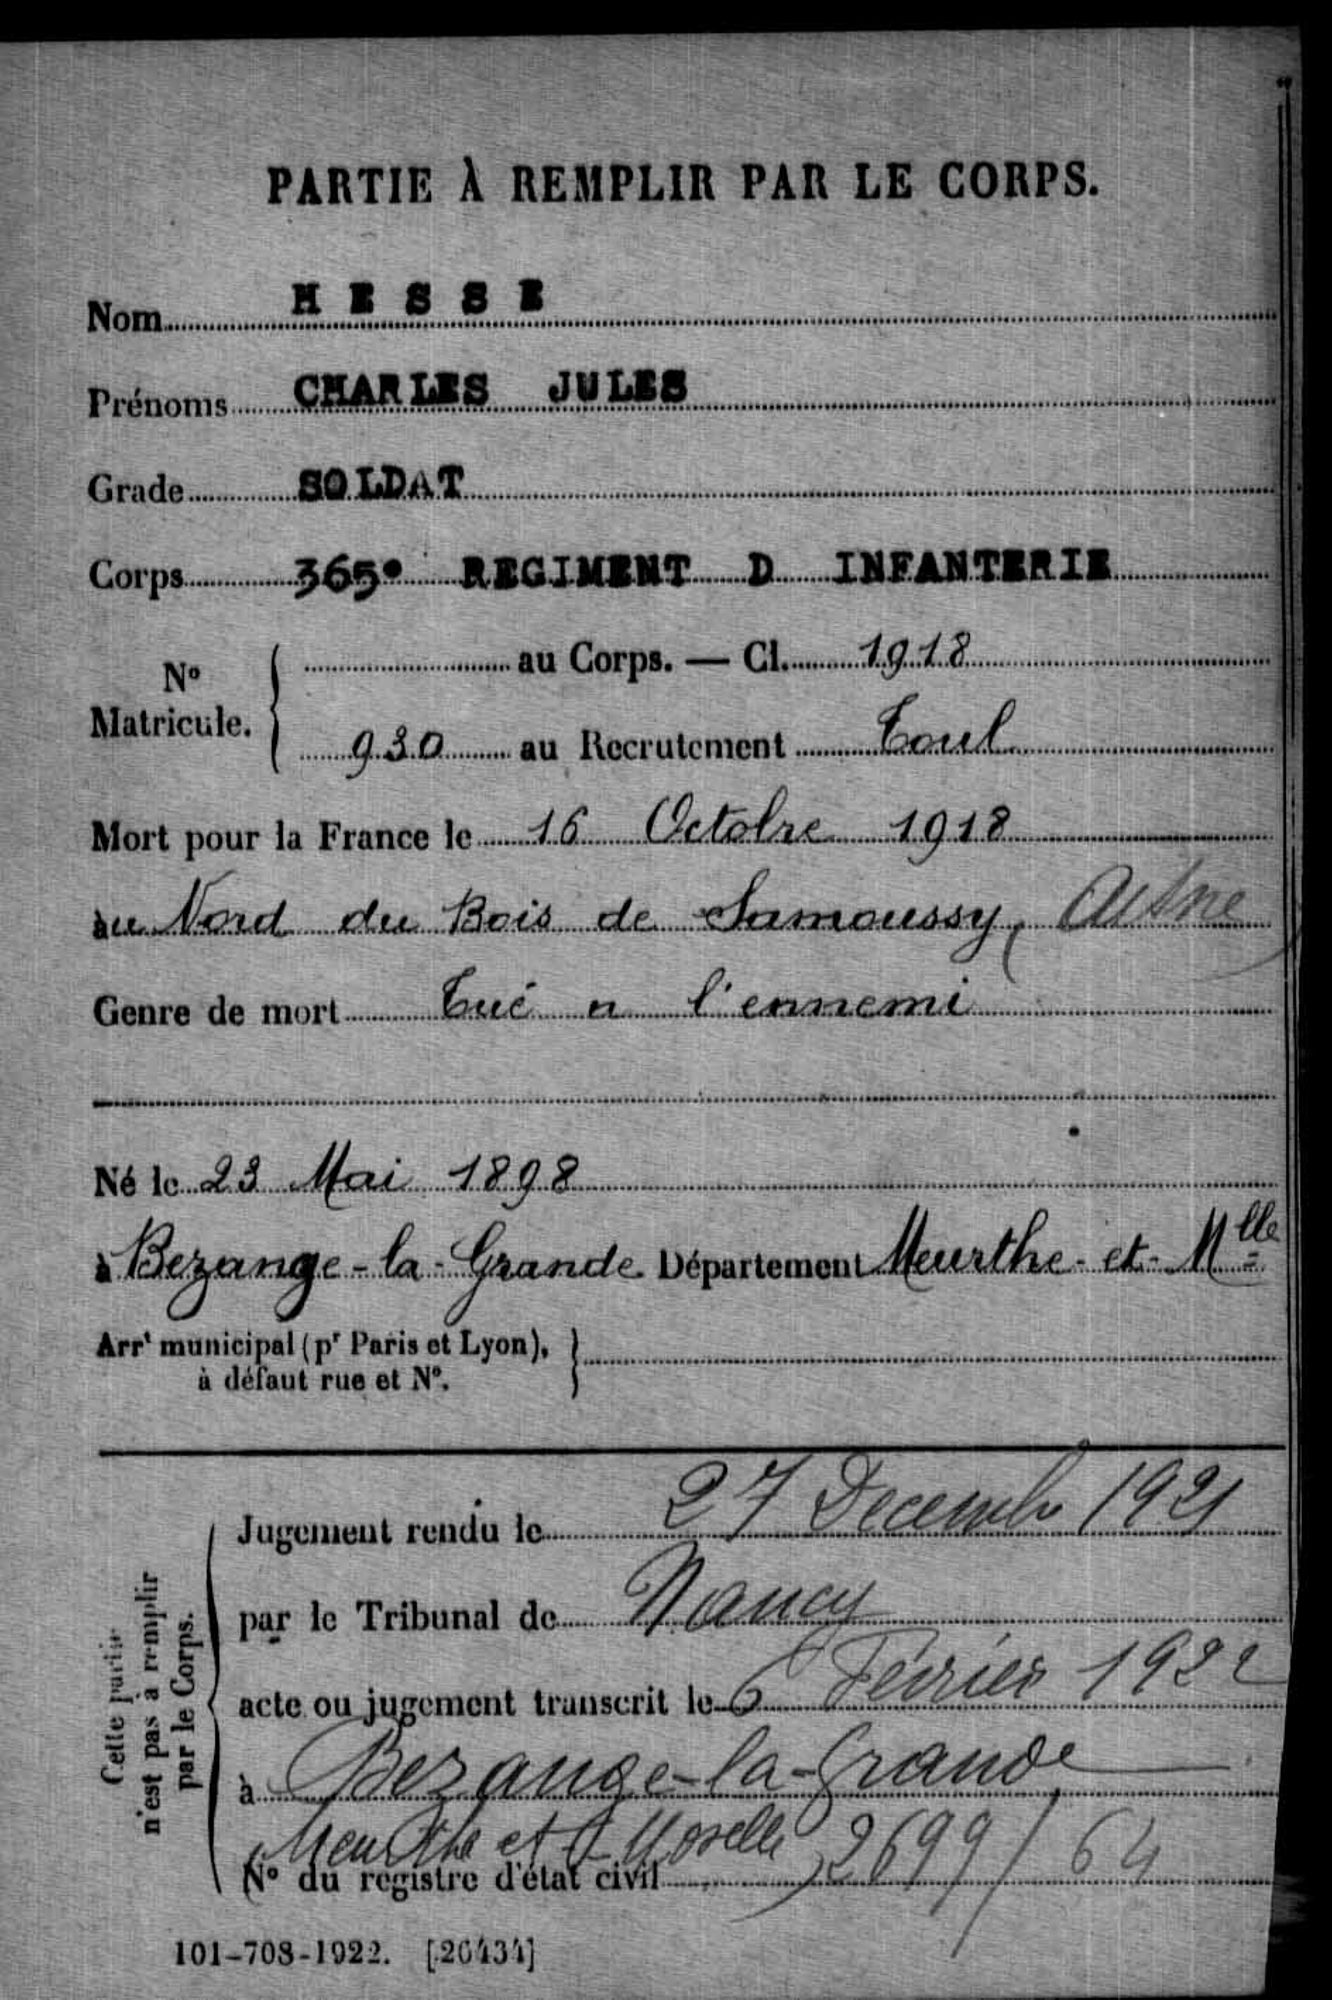 PARTIE À REMPLIR PAR LE CORPS.
Nom HESSE
Prénoms CHARLES JULES
Grade SOLDAT
Corps 365e REGIMENT D INFANTERIE
au Corps. — Cl. 1918
N° Matricule.
930 au Recrutement Toul
Mort pour la France le 16 Octobre 1918
au Nord du Bois de Samoussy, Aisne
Genre de mort Tué a l'ennemi
Né le 23 Mai 1898
à Bezange-la-Grande Département Meurthe-et-Mlle
Arrt municipal (pr Paris et Lyon),
à défaut rue et N°.
Jugement rendu le 27 Decembre 1921
par le Tribunal de Nancy
acte ou jugement transcrit le 6 Février 1922
à Bezange-la-Grande
Meurthe et Moselle
N° du registre d'état civil 2699/64
Cette partie
n'est pas à remplir
par le Corps.
101-708-1922. [26434]